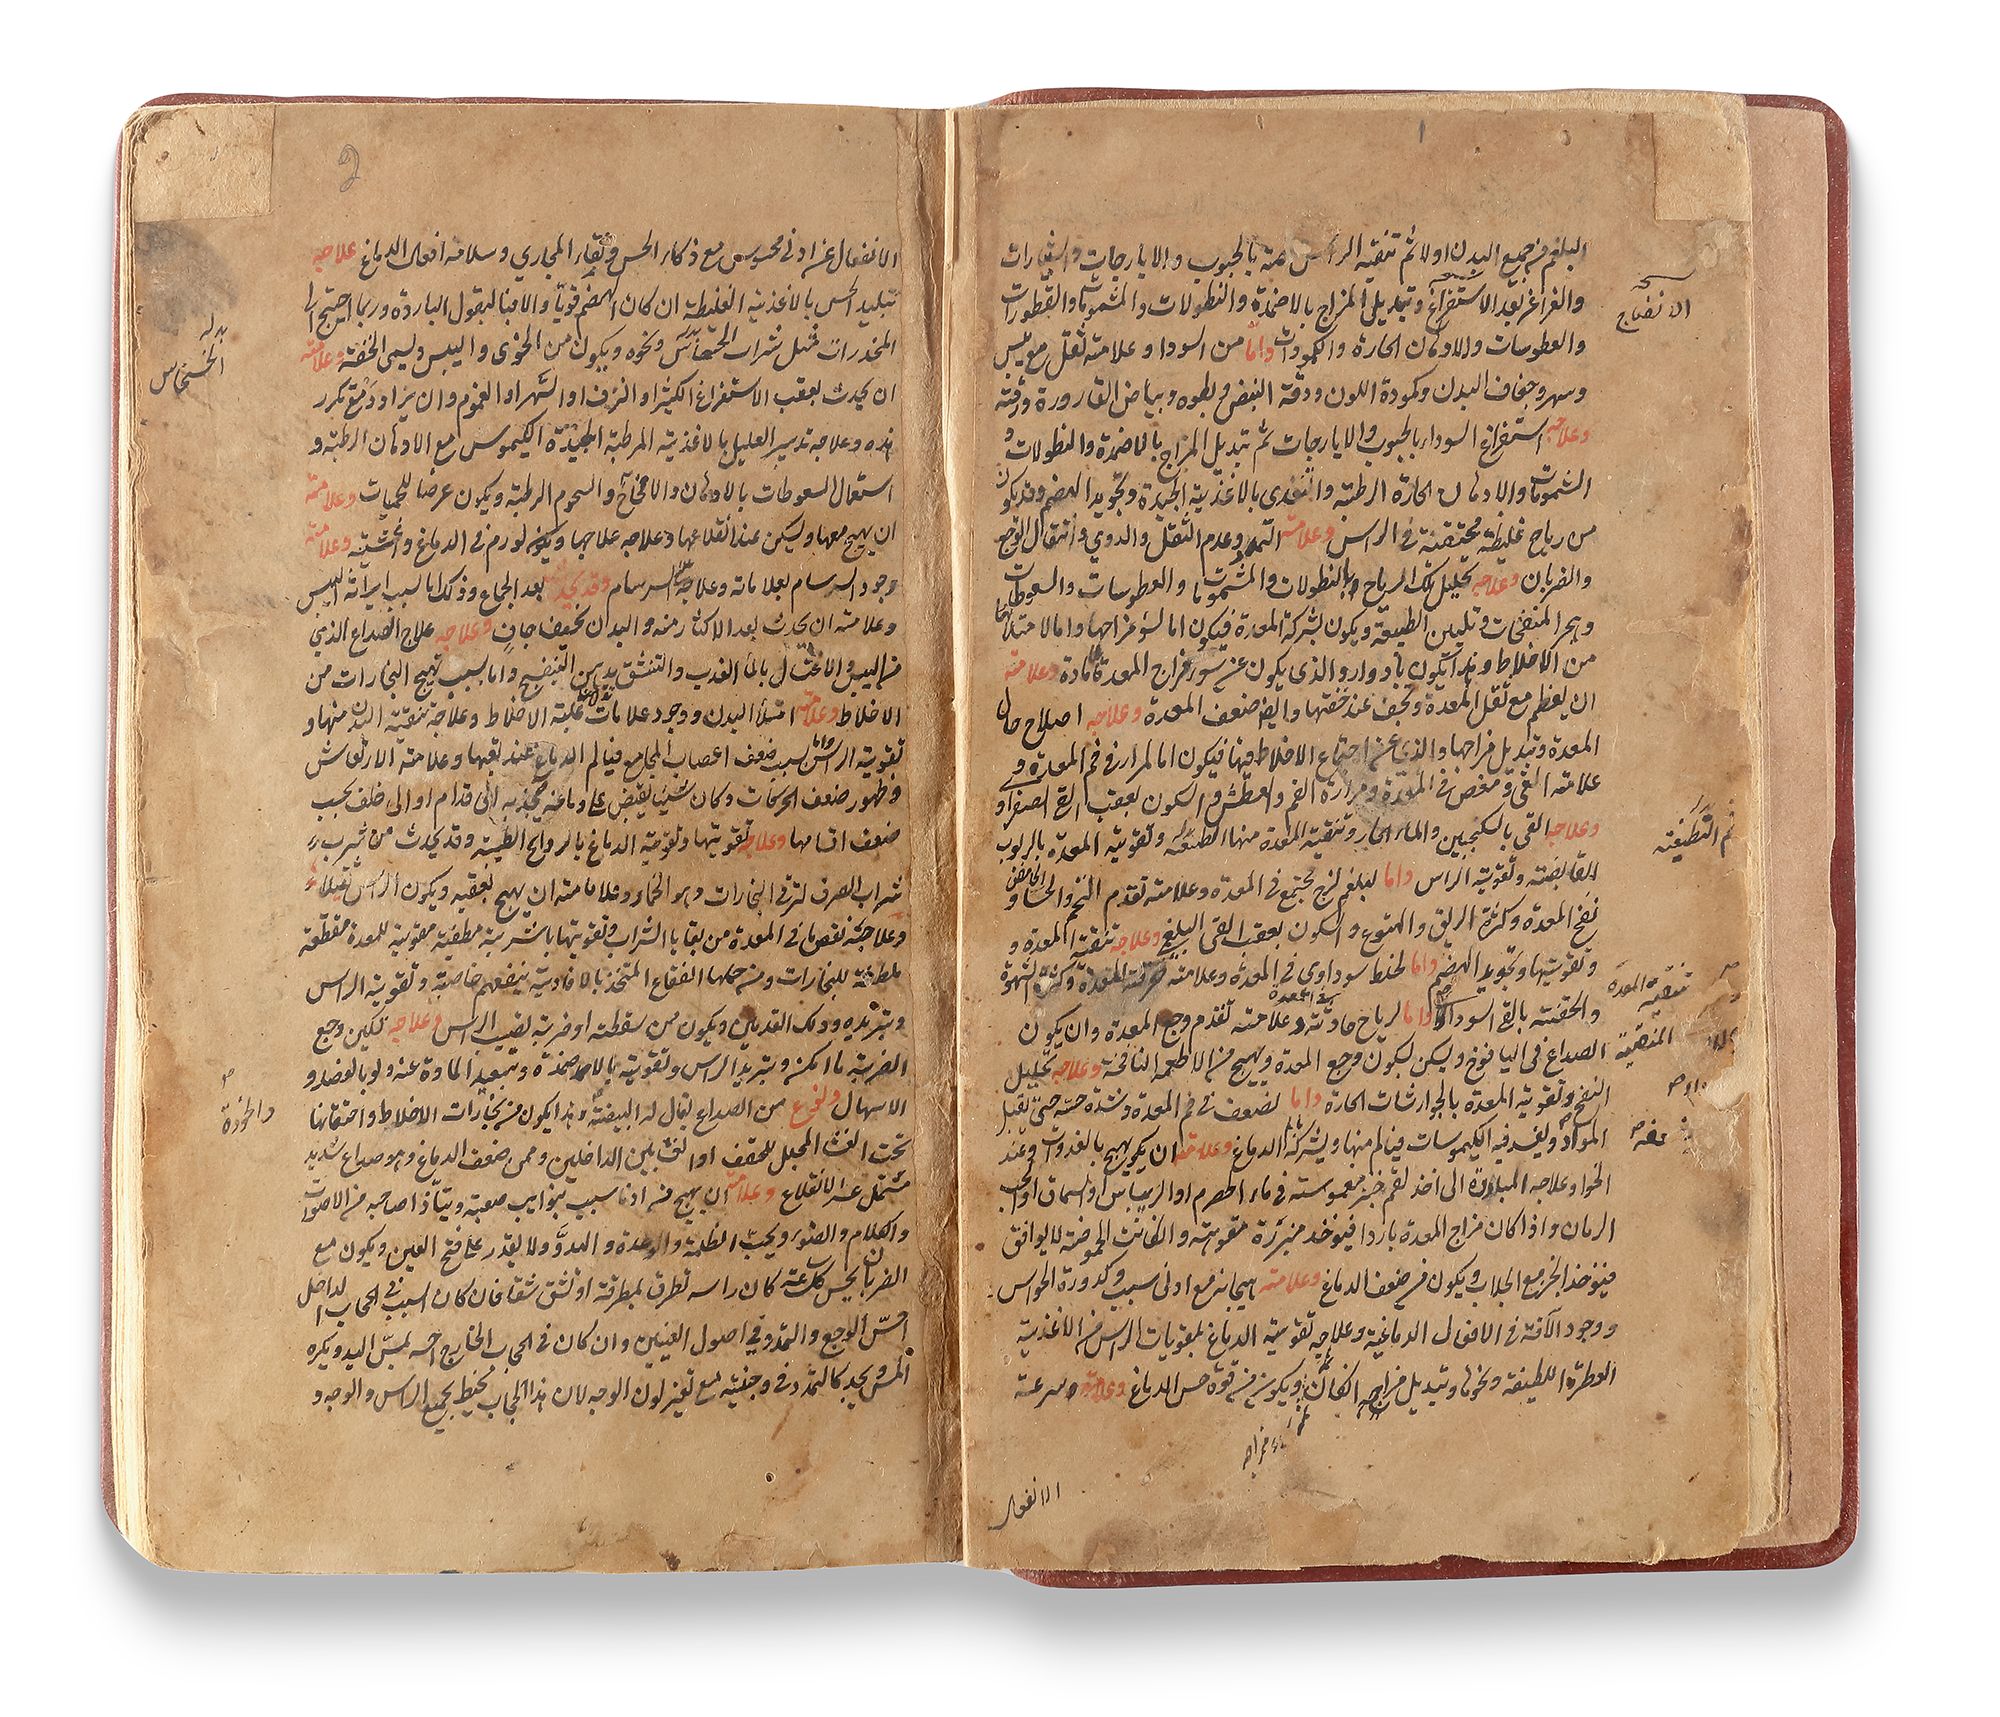 البلغم من جميع البدن اولا ثم تنقية الراس منه بالحبوب والايارجات والشيارات
والغراغر بعد الاستفراغ وتبديل المزاج بالاضمدة والنطولات والمشمومات والقطورات
والعطوسات والادهان الحارة والكمودات واما من السودا وعلامته ثقل مع يبس
وسهر وجفاف البدن وكمودة اللون ودقة النبض وبطوه وبياض القارورة ورقته
وعلاجه استفراغ السوداء بالحبوب والايارجات ثم تبديل المزاج بالاضمدة والنطولات و
الشمومات والادهان الحارة الرطبة والتغذي بالاغذية الجيدة وتجويد الهضم وقد يكون
من رياح غليظة محتقنة في الراس وعلامته التمدد وعدم الثقل والدوي وانتقال الوجع
والضربان وعلاجه تحليل تلك الرياح بالنطولات والمشمومات والعطوسات والسعوطات
وهجر المنفخات وتليين الطبيعة ويكون بشركة المعدة فيكون اما لسؤ مزاجها واما لامتلائها
من الاخلاط وهذا يكون بادوار والذي يكون عن سؤ مزاج المعدة بلا مادة وعلامته
ان يعظم مع ثقل المعدة ويخف عند خفتها وايضا ضعف المعدة وعلاجه اصلاح حال
المعدة وتبديل مزاجها والذي عن اجتماع الاخلاط فيها فيكون اما لمرار في فم المعدة و
علامته الغثي ومغص في المعدة ومرارة الفم والعطش والسكون بعقب القئ الصفراوي
وعلاجه القي بالسكنجبين والماء الحار وتنقية المعدة منها وتقوية المعدة بالربوب
القابضة وتقوية الراس واما لبلغم لزج مجتمع في المعدة وعلامته تقدم التخم والجشاء الحامض و
نفخ المعدة وكثرة الريق والتهوع والسكون بعقب القي البلغمي وعلاجه تنقية المعدة و
وتقويتها وتجويد الهضم واما لخلط سوداوي في المعدة وعلامته حرقة المعدة وكثرة الشهوة
والخفة بالقئ السوداوي واما لرياح حادثة في المعدة وعلامته تقدم وجع المعدة وان يكون
الصداع في اليافوخ ويسكن بسكون وجع المعدة ويهيج من الاطعمة النافخة وعلاجه تحليل
النفخ وتقوية المعدة بالجوارشات الحارة واما لضعف في فم المعدة وشدة حسه حتى يقبل
المواد ويفسد فيه الكيموسات فيالم منها ويشركه الدماغ وعلامته ان يهيج بالغدوات وعند
الخوا وعلاجه المبادرة الى اخذ لقم خبز مغموسة في ماء الحصرم او الريباس او السماق او حب
الرمان واذا كان مزاج المعدة باردا فيؤخذ مبزرة مقوية وان كانت الحموضة لا يوافق
فيؤخذ الخبز مع الجلاب ويكون من ضعف الدماغ وعلامته هيجانه مع ادنى سبب وكدورة الحواس
ووجود الآفة في الافعال الدماغية وعلاجه تقوية الدماغ بمقويات الراس من الاغذية
العطرة اللطيفة ونحوها وتبديل مزاجه ان كان ويكون من قوة حس الدماغ وعلامته سرعة
الانفعال
الانضاج
ثم التطفية
تنقية المعدة
الانفعال عن ادنى محسوس مع ذكاء الحس ونقاء المجاري وسلامة افعال الدماغ علاجه
تبليد الحس بالاغذية الغليظة ان كان الهضم قويا والا فبالبقول الباردة وربما احتيج الى
المخدرات مثل شراب الخشخاش ونحوه ويكون من الخوى واليبس ويسمى الخفة وعلامته
ان يحدث بعقب الاستفراغ الكثير او النزف او السهر او الغموم وان يزاد مع تكرر
هذه وعلاجه تدبير العليل بالاغذية المرطبة الجيدة الكيموس مع الادهان الرطبة و
استعمال السعوطات بالادهان والامخاخ والشحوم الرطبة ويكون عرضا للحميات وعلامته
ان يهيج معها ويسكن عند اقلاعها وعلاجه علاجها ويكون لورم في الدماغ واغشيته وعلامته
وجود السرسام بعلاماته وعلاجه علاج السرسام وقد يحدث بعد الجماع وذلك اما لسبب ايراثه اليبس
وعلامته ان يحدث بعد الاكثار منه والبدن نحيف جاف وعلاجه علاج الصداع الذي
من اليبس والاغتسال بالماء العذب والتنشق بدهن البنفسج واما بسبب تهيج البخارات من
الاخلاط وعلامته امتلاء البدن ووجود علامات غلبة الاخلاط وعلاجه تنقية البدن منها و
تقوية الراس واما بسبب ضعف اعصاب المجامع فيالم الدماغ عند تعبها وعلامته الارتعاش
وظهور ضعف الحركات وكان شيئا يقبض على دماغه يجذبه الى قدام او الى خلف بحسب
ضعف اقسامها وعلاجه تقويتها وتقوية الدماغ بالروايح الطيبة وقد يحدث من شرب
شراب الصرف لترقي البخارات وهو الخمار وعلامته ان يهيج بعقبه ويكون الراس ثقيلا
وعلاجه نفض ما في المعدة من بقايا الشراب وتقويتها باشربة مطفية مقوية للمعدة مقطعة
ملطفة للبخارات ومن جملتها الفقاع المتخذ بالافاوية ينفعهم خاصية وتقوية الراس
وتبريده ودلك القدمين ويكون من سقطة او ضربة تصيب الراس وعلاجه تسكين وجع
الضربة ما امكن وتبريد الراس وتقويته بالاضمدة وتبعيد المادة عنه ولو بالفصد و
الاسهال ونوع من الصداع يقال له البيضة وهذا يكون من بخارات الاخلاط واحتقانها
تحت الغشا المجلل للقحف او الغشايين الداخلين ومن ضعف الدماغ وهو صداع شديد
مشتمل عسر الاقلاع وعلامته ان يهيج من ادنا سبب بنوايب صعبة ويتاذا صاحبه من الاصوات
والكلام والضوء ويحب الظلمة والوحدة والهدو ولا يقدر على فتح العين ويكون مع
الضربان يحس كل ساعة كان راسه تطرق بمطرقة او تشق شقا فان كان السبب في الحجاب الداخل
احس الوجع والتمدد في اصول العينين وان كان في الحجاب الخارج احسه بمس اليد ويكره
المس ويجد كالتمدد في وجنتيه مع تغير لون الوجه لان هذا الحجاب يحيط بجميع الراس والوجه و
بدله
الخشخاش